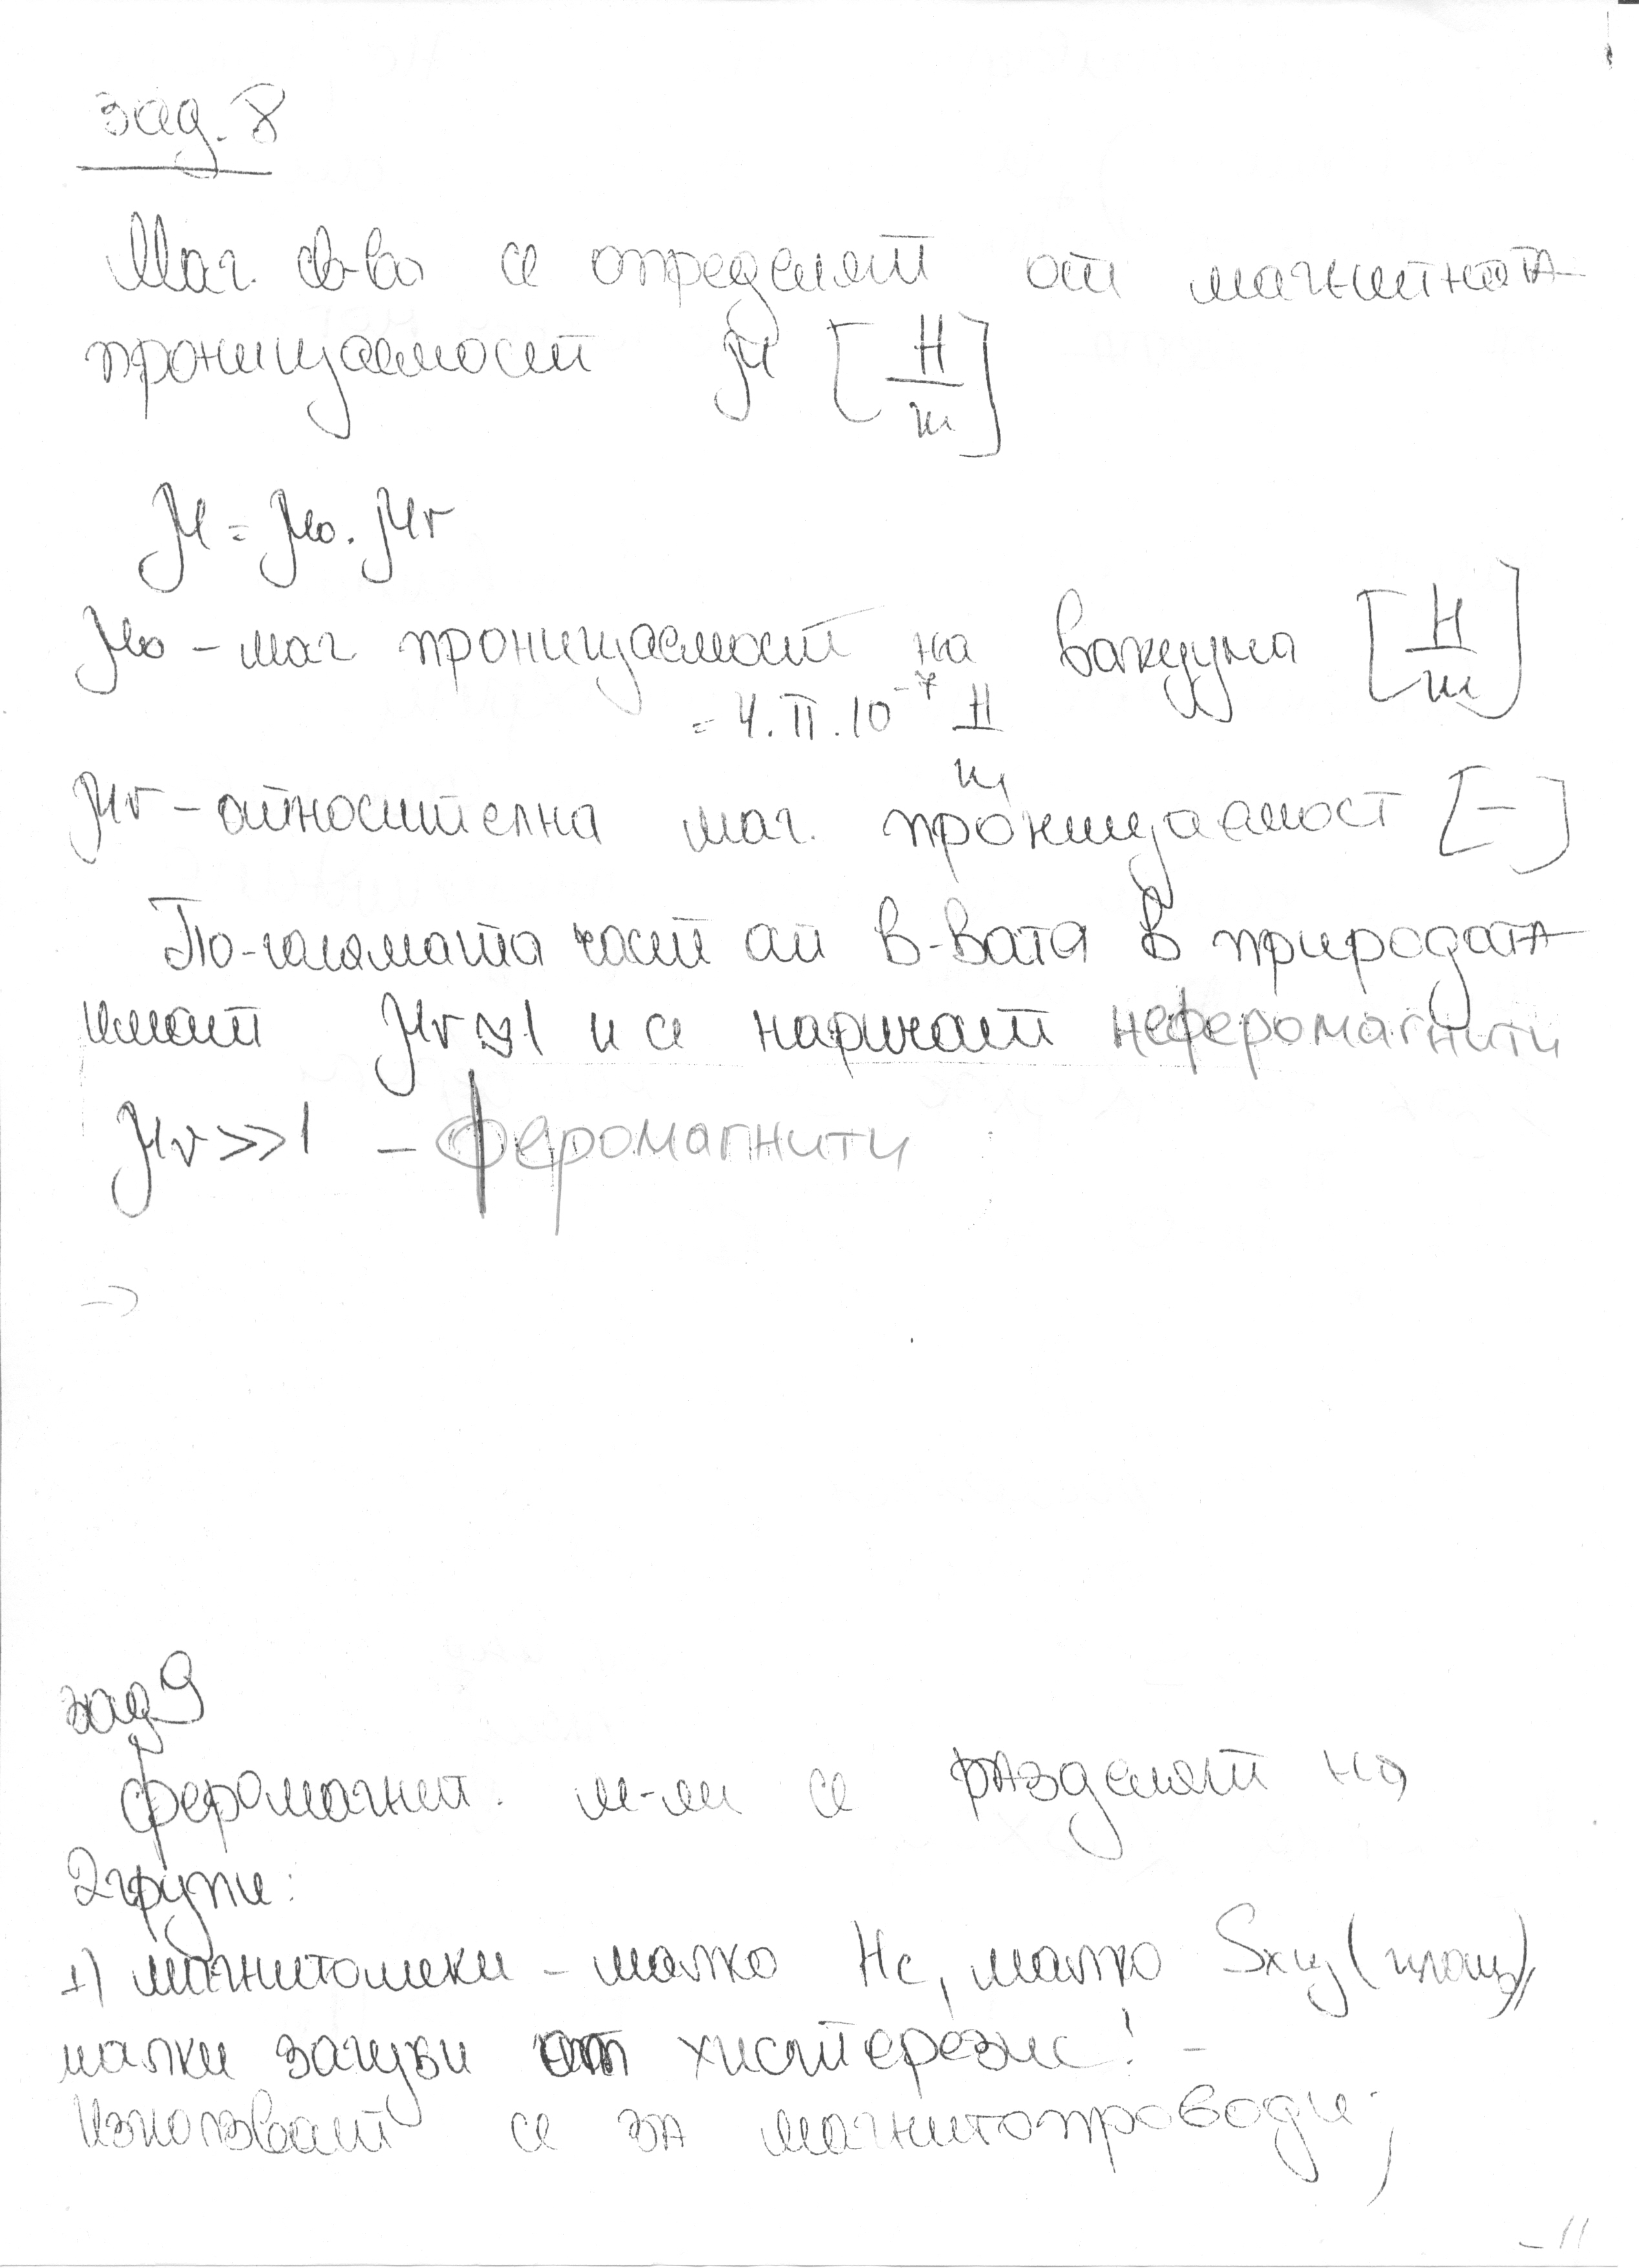 зад. 8
Маг. св-ва се определят от магнитната
проницаемост μ [H/m]
μ = μ0 . μr
μ0 – маг проницаемост на вакуума [H/m]
= 4.π.10⁻⁷ H/m
μr – относителна маг. проницаемост [–]
По-голямата част от в-вата в природата
имат μr≈1 и се наричат неферомагнити
μr >> 1 – феромагнити
зад 9
феромагнит. м-ли се разделят на
2 групи:
1) магнитомеки – малко Hc, малко Sхц (площ),
малки загуби от хистерезис! –
Използват се за магнитопроводи;
– 11